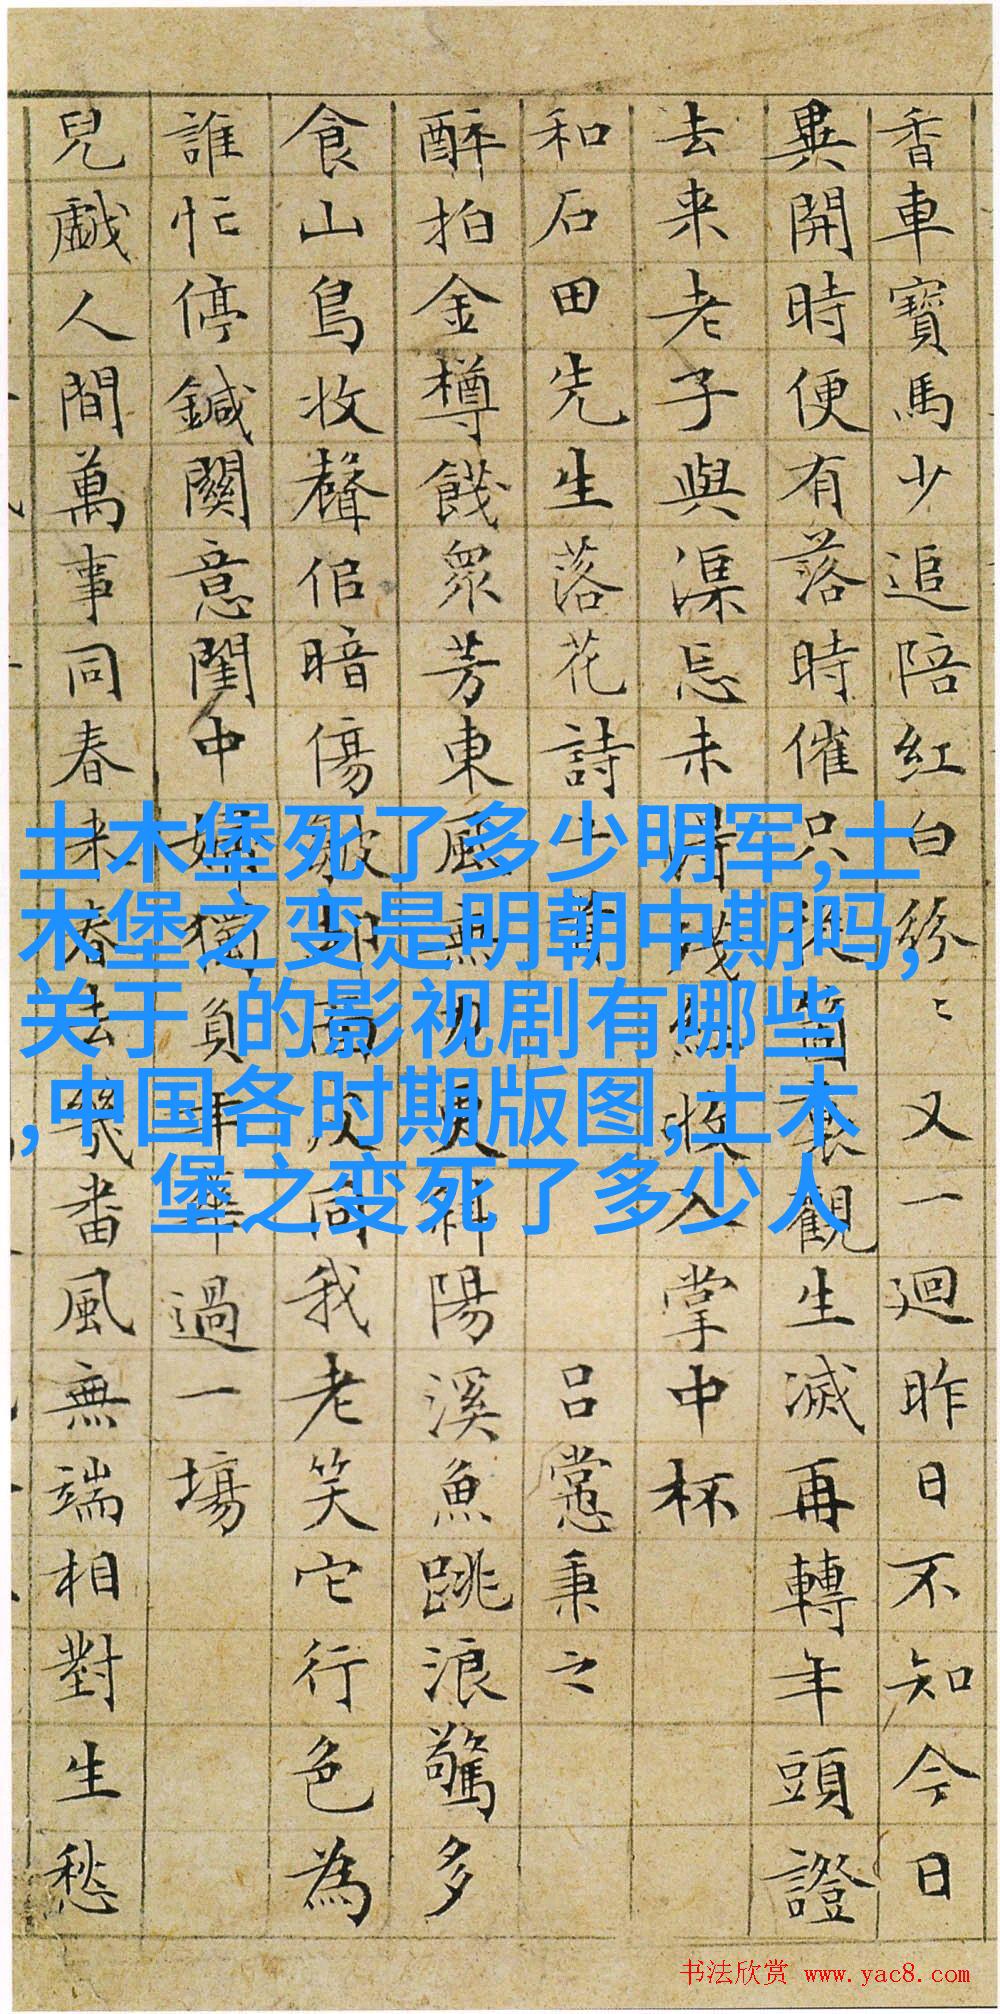 香車寶馬少追陪紅白紛〻又一廻昨日不知今日
異開時便有落時催只從箇裏觀生滅再轉年頭證
去来老子與渠忘未紅收入掌中杯
和石田先生落花詩十首 呂㦂秉之
醉拍金樽餞眾芳東風無力更斜陽溪魚跳浪驚多
食山鳥收聲佀暗傷雨同我老笑它行色為
誰忙停鍼關意閨中婦獨負年華過一場
兒戲人間萬事同春来春去幾番風無端相對生愁
土木堡死了多少明军,土
木堡之变是明朝中期吗,
关于 的影视剧有哪些
,中国各时期版图,土木
堡之变死了多少人
书法欣赏 www.yac8.com